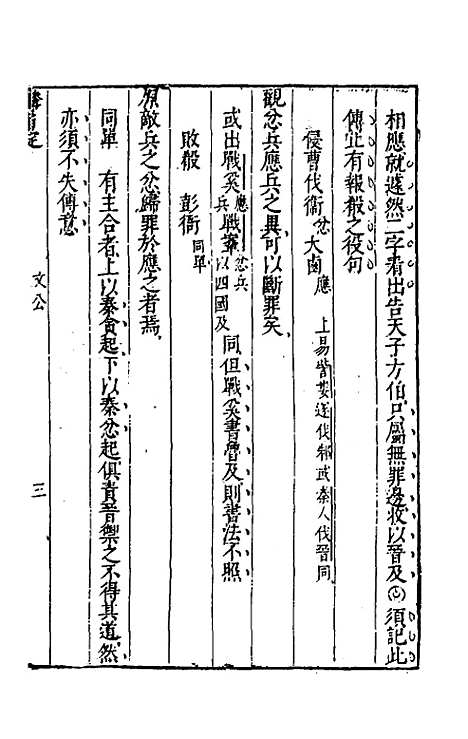 相應就遽然二字看出告天子方伯只屬無罪邊收以晉及㊀須記此
傳止有報殽之役句
侵曹伐衞忿大鹵應上易訾婁遂伐邾或秦人伐晉同
觀忿兵應兵之異可以斷罪矣
或出戰奚應兵戰宋忿兵以四國及同但戰奚書會及則書法不照
敗殽 彭衙同單
原敵兵之忿歸罪於應之者焉
同單 有主合者上以秦貪起下以秦忿起俱責晉禦之不得其道然
亦須不失傳意
文公
三